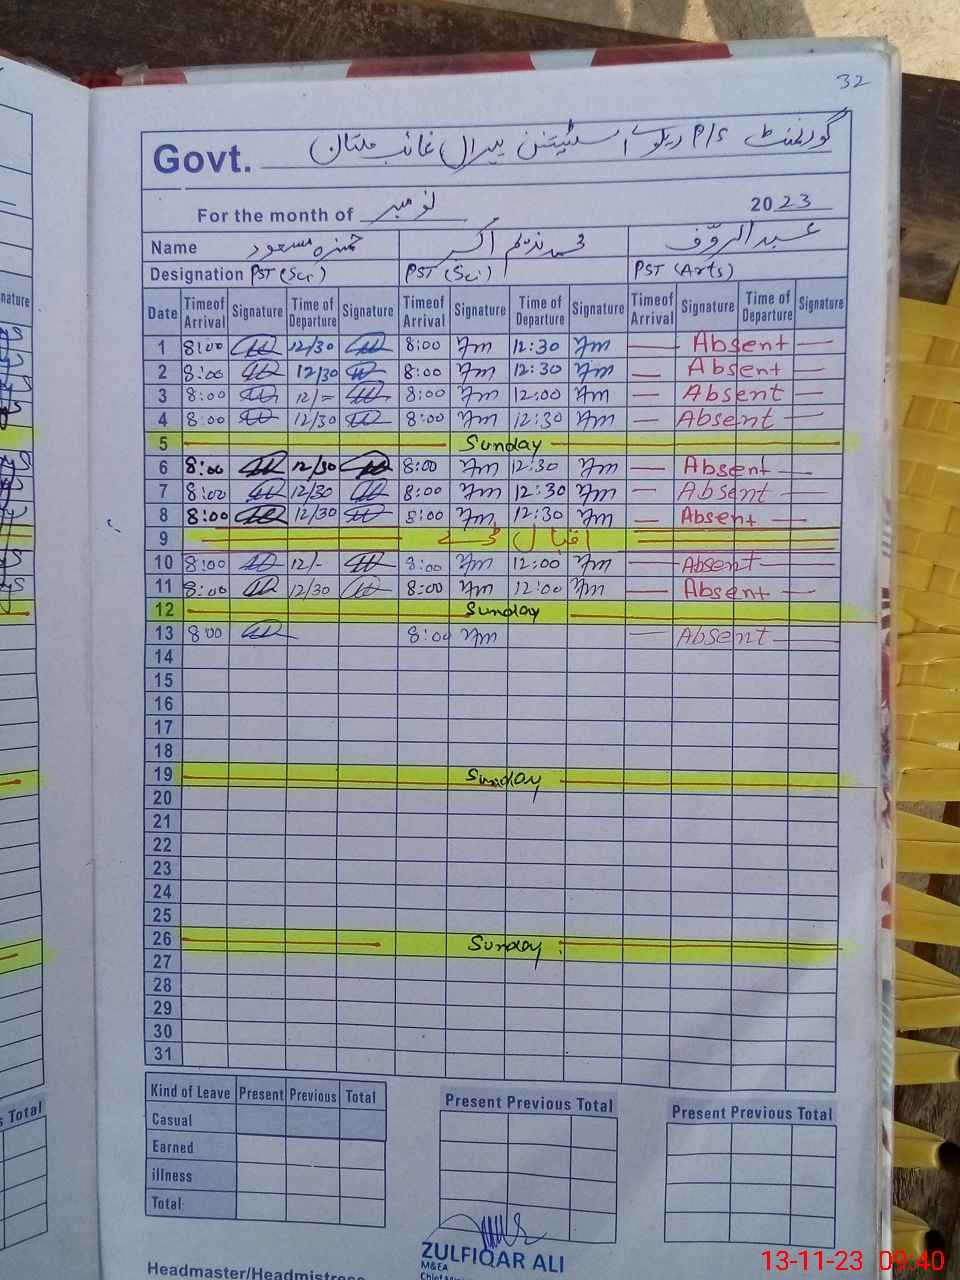 32
Govt. گورنمنٹ P/S ریلوے اسٹیشن پیراں غائب ملتان
For the month of نومبر 2023
Name حمزہ مسعود محمد ندیم اکبر عبدالرؤف
Designation PST (Sci) PST (Sci) PST (Arts)
Date Timeof Arrival Signature Time of Departure Signature Timeof Arrival Signature Time of Departure Signature Timeof Arrival Signature Time of Departure Signature
1 8:00 12/30 8:00 12:30 Absent
2 8:00 12/30 8:00 12:30 Absent
3 8:00 12/= 8:00 12:00 Absent
4 8:00 12/30 8:00 12:30 Absent
5 Sunday
6 8:00 12/30 8:00 12:30 Absent
7 8:00 12/30 8:00 12:30 Absent
8 8:00 12/30 8:00 12:30 Absent
9 اقبال ڈے
10 8:00 12/- 8:00 12:00 Absent
11 8:00 12/30 8:00 12:00 Absent
12 Sunday
13 8:00 8:00 Absent
14
15
16
17
18
19 Sunday
20
21
22
23
24
25
26 Sunday
27
28
29
30
31
Kind of Leave Present Previous Total Present Previous Total Present Previous Total
Casual
Earned
illness
Total:
ZULFIQAR ALI
M&EA
Headmaster/Headmistress
13-11-23 09:40
nature
s Total